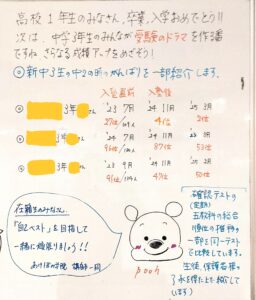 高校1年生のみなさん、卒業、入学おめでとう!!
次は、中学3年生のみんなが受験のドラマを作る番
ですね。さらなる成績アップをめざそう!
◎新中3生の中2の時のがんばりを一部紹介します。
入塾直前 入塾後
① 3年 さん '23 7月 '24 11月 '25 3月
27位 41位 2位
② 3年 さん '24 7月 '24 11月
96位 87位 53位
③ 3年 さん '23 9月 '24 11月
91位 47位 51位
在籍生のみなさん、
「自己ベスト」を目指して
一緒に頑張りましょう!!
講師一同
pooh
確認テストの
(定期)
五教科の総合
順位の推移の
一部を同一テスト
で比較しています。
生徒、保護者様の
了承を得た上で掲示して
います)